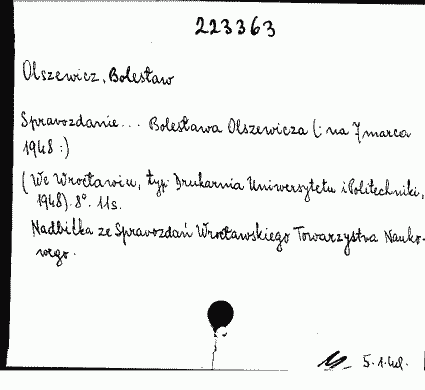 223363
Olszewicz, Bolesław
Sprawozdanie... Bolesława Olszewicza (: na 7 marca
1948 :)
(We Wrocławiu, typ. Drukarnia Uniwersytetu i Politechniki,
1948). 8°. 11 s.
Nadbitka ze Sprawozdań Wrocławskiego Towarzystwa Nauko-
wego.
5.1.49.